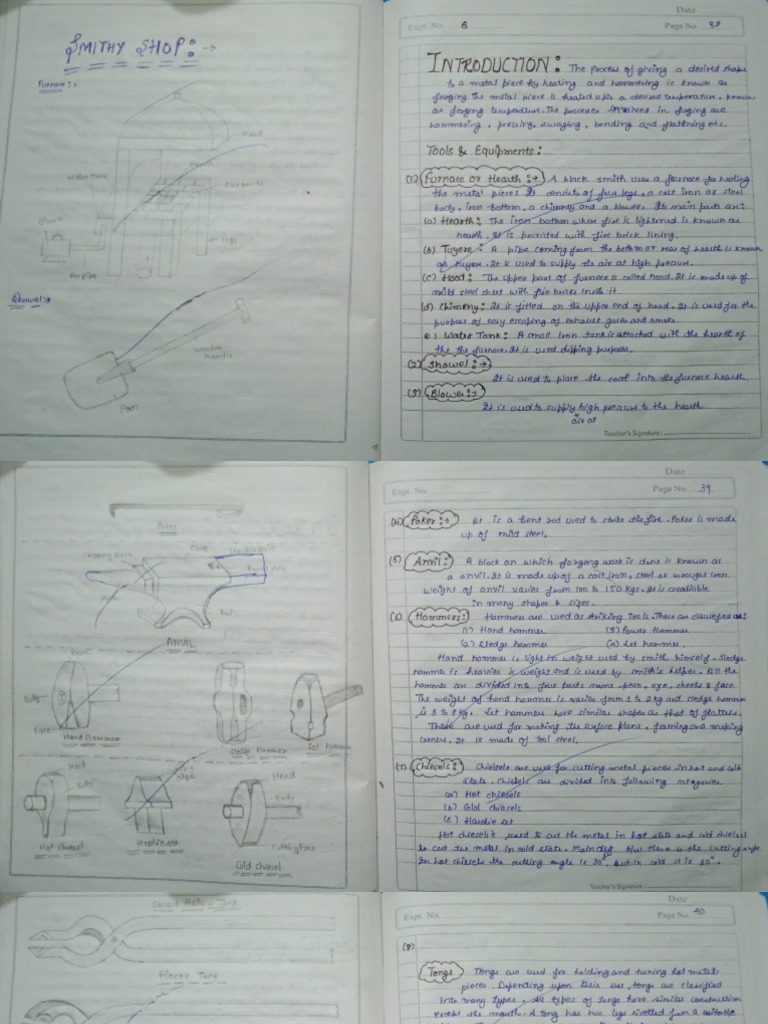 SMITHY SHOP:→
Furnace:→
Hood
Hearth
Water tank
Fire bricks
Blower
Legs
Air pipe
Showel:→
Wooden
Handle
Pan
Date
Expt. No. 6
Page No. 38
INTRODUCTION: The process of giving a desired shape
to a metal piece by heating and hammering is known as
forging. The metal piece is heated upto a desired temperature, known
as forging temperature. The processes involved in forging are
hammering, pressing, swaging, bending and flattening etc.
Tools & Equipments:
(1) Furnace or Hearth:→ A black smith uses a furnace for heating
the metal pieces. It consists of four legs, a cast iron as steel
body, iron bottom, a chimney and a blower. Its main parts are:
(a) Hearth: The iron bottom where fire is lightened is known as
hearth. It is provided with fire brick lining.
(b) Tuyere: A pipe coming from the bottom or rear of hearth is known
as tuyere. It is used to supply the air at high pressure.
(c) Hood: The upper part of furnace is called hood. It is made up of
mild steel sheet with fire bricks inside it.
(d) Chimeny: It is fitted on the upper end of hood. It is used for the
purpose of easy escaping of exhaust gases and smoke
e) Water Tank: A small iron tank is attached with the hearth of
the the furnace. It is used dipping purposes.
(2) Showel:→
It is used to place the coal into the furnace hearth
(3) Blower:→
It is used to supply high pressure to the hearth
air at
Teacher's Signature :
Poker
Face
Hardie Hole
Horn
Body
ANVIL
Peen
Body
Face
Hand Hammer
Sledge Hammer
Set hammer
Head
Body
Hot chiesel
Cutting
edge
Hardie set
Head
Body
Cutting Face
Cold chiesel
Date
Expt. No.
Page No. 39
(4) Poker:→ It is a bent rod used to strike the fire. Poker is made
up of mild steel.
(5) Anvil: A block on which forging work is done is known as
a anvil. It is made up of a cast iron, steel or wrought iron.
Weight of anvil varies from 100 to 150 kgs. It is available
in many shapes & sizes.
(6) Hammers: Hammers are used as striking tools. These are classified as:
(1) Hand hammer (3) Power Hammer
(2) Sledge hammer (4) Set hammer
Hand hammer is light in weight used by smith himself. Sledge
hammer is heavier in weight and is used by smith's helper. All the
hammer are divided into four parts name - peen, eye, cheeks & face
The weight of hand hammer is varies from 1 to 2 kg and sledge hammer
is 3 to 8 kg. Set hammers have similar shapes as that of flatters.
These are used for making the surface plane, forming and making
corners. It is made of tool steel.
(7) Chiesels: Chiesels are used for cutting metal pieces in hot and cold
state. Chiesels are divided into following categories
(a) Hot chiesels
(b) Cold chiesels
(c) Hardie set
Hot chiesels used to cut the metal in hot state and cold chiesel
to cut the metal in cold state. Main diff. b/w these is the cutting angle
In hot chiesels the cutting angle is 30°, but in cold it is 60°.
Teacher's Signature :
Square Hollow Tong
Pincer Tong
Date
Expt. No.
Page No. 40
(8)
Tongs Tongs are used for holding and turning hot metal
pieces. Depending upon their use, tongs are classified
into many types. All types of tongs have similar construction
except the mouth. A tong has two legs rivetted from a suitable